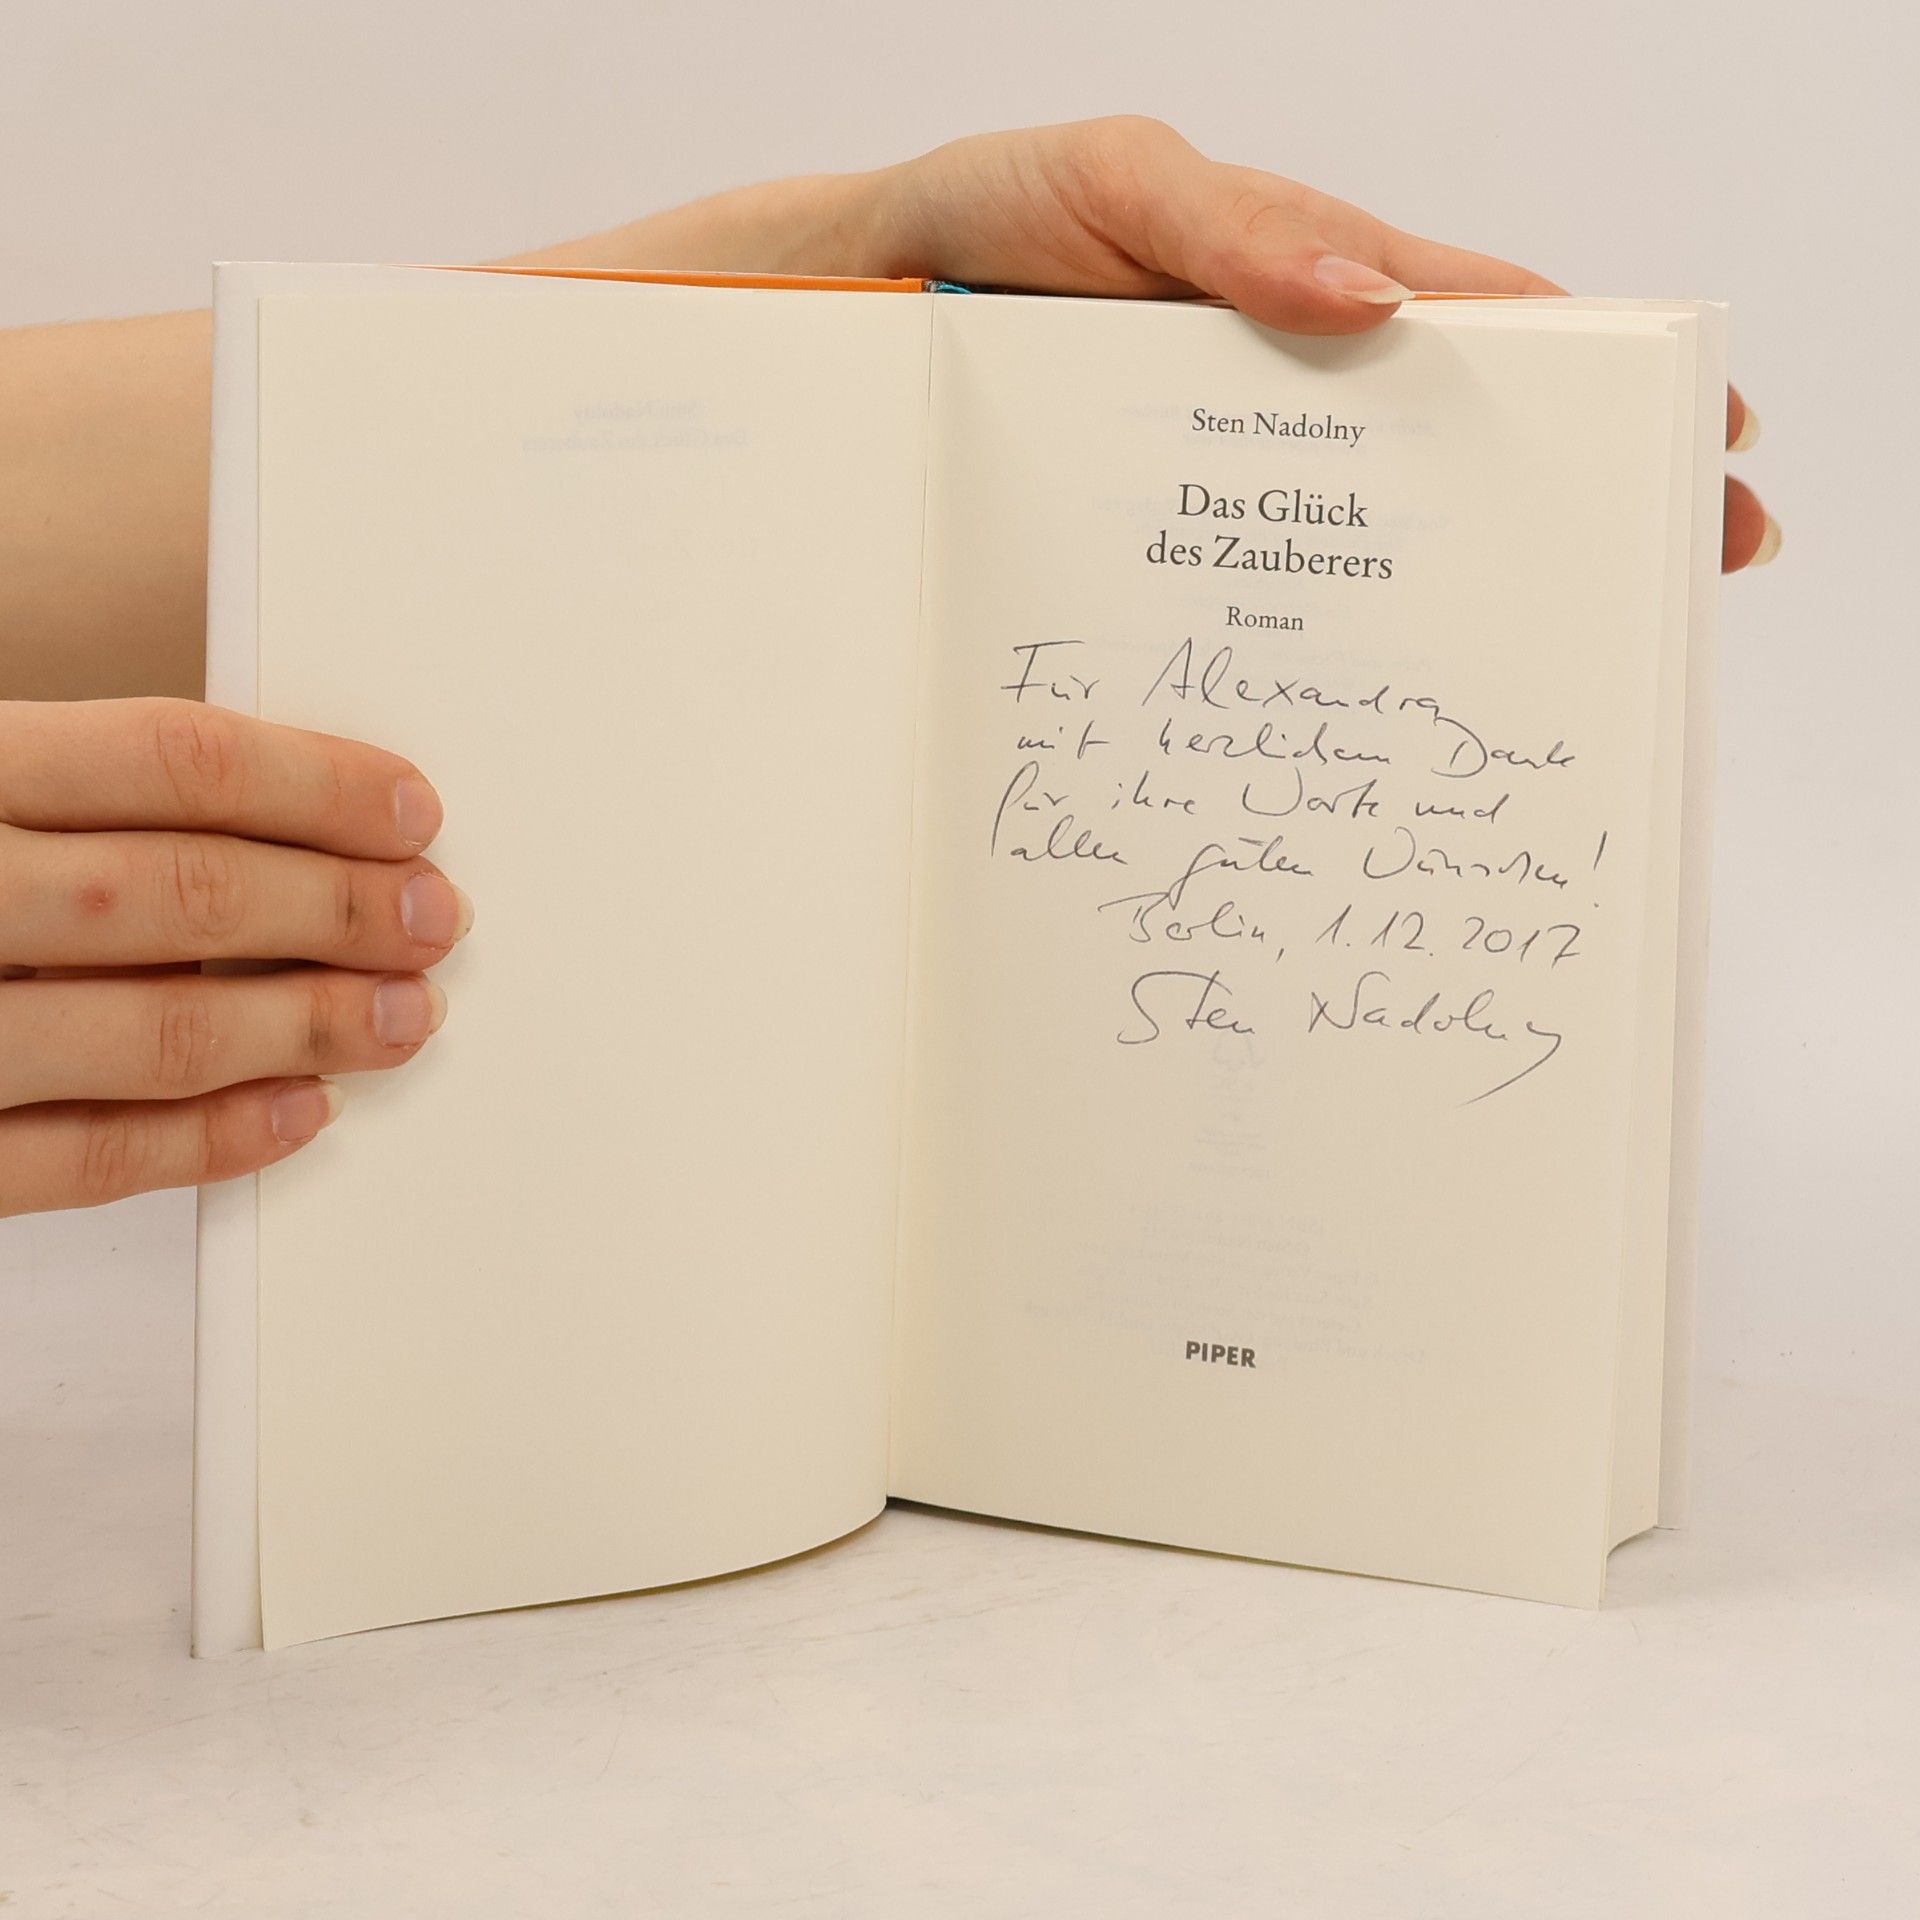 Sten Nadolny
Das Glück
des Zauberers
Roman
Für Alexandra,
mit herzlichem Dank
für ihre Worte und
allen guten Wünschen!
Berlin, 1.12.2017
Sten Nadolny
PIPER